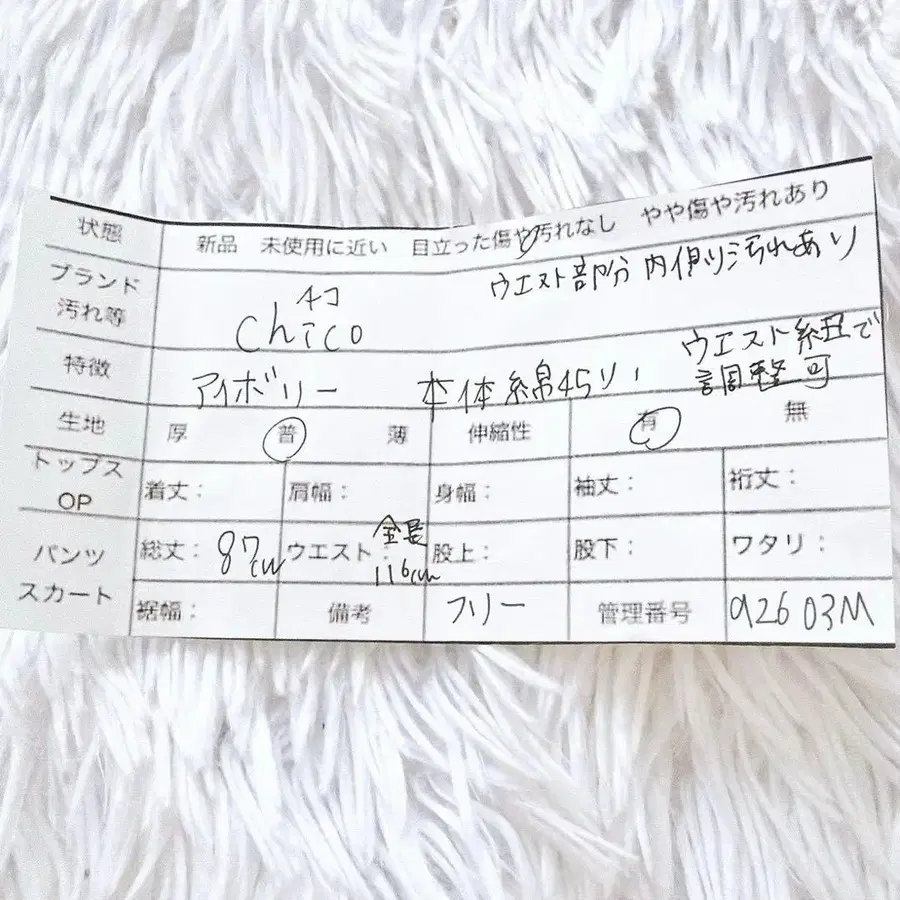 状態 新品 未使用に近い 目立った傷や汚れなし やや傷や汚れあり
ブランド
汚れ等
チコ
chico
ウエスト部分 内側り汚れあり
特徴 アイボリー 本体綿45リ、
ウエスト紐で
調整可
生地 厚 普 薄 伸縮性 有 無
トップス
OP
着丈: 肩幅: 身幅: 袖丈: 裄丈:
パンツ
スカート
総丈: 87cm ウエスト: 全長 116cm 股上: 股下: ワタリ:
裾幅: 備考 フリー 管理番号 92603M